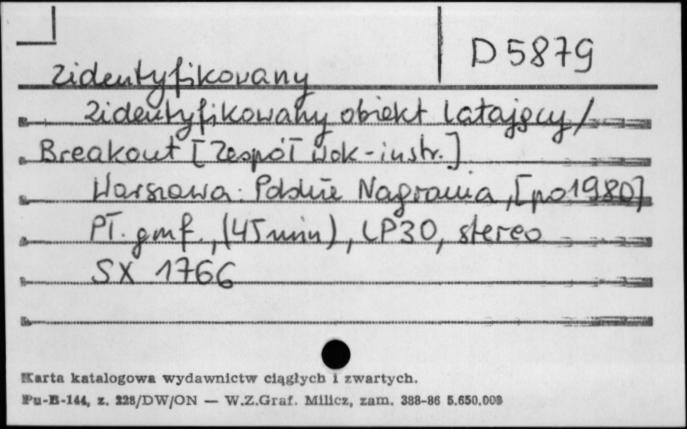 D 5879
Zidentyfikowany
Zidentyfikowany obiekt latający /
Breakout [Zespół wok-instr.]
Warszawa: Polskie Nagrania, [po 1980]
Pł. gmf., (45 min), LP30, stereo
SX 1766
Karta katalogowa wydawnictw ciągłych i zwartych.
Pu-B-144, z. 228/DW/ON — W.Z.Graf. Milicz, zam. 388-86 5.650.000